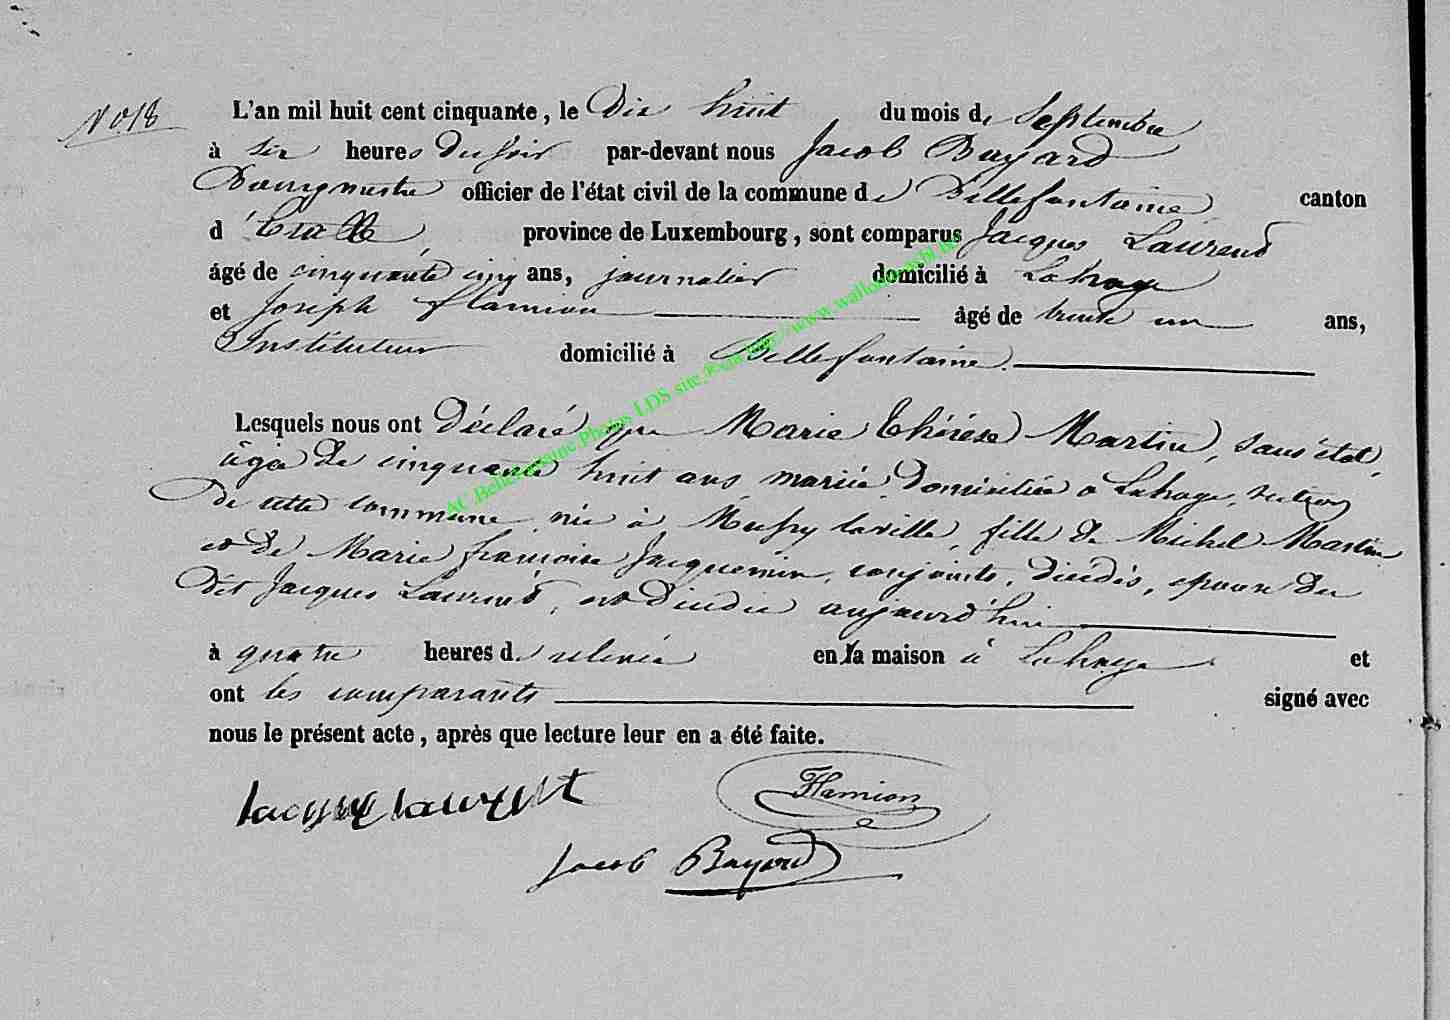 No 18
L'an mil huit cent cinquante, le Dix huit du mois de Septembre
à six heures du soir par-devant nous Jacob Bayard
Bourgmestre officier de l'état civil de la commune de Bellefontaine canton
d'Etalle, province de Luxembourg, sont comparus Jacques Laurend
âgé de cinquante cinq ans, journalier domicilié à Lahage
et Joseph flamion âgé de trente un ans,
Instituteur domicilié à Bellefontaine.
Lesquels nous ont Déclaré que Marie Thérèse Martin, sans état,
âgée de cinquante huit ans mariée, domiciliée à Lahage, section
de cette commune, née à Mussy laville, fille de Michel Martin
et de Marie françoise Jacquemin, conjoints, décédés, epouse du
dit Jacques Laurent, est décédée aujourd'hui
à quatre heures de relevée en la maison à Lahage et
ont les comparants signé avec
nous le présent acte, après que lecture leur en a été faite.
Jacque laurent Flamion
Jacob Bayard
AC Bellefontaine Photos LDS site http://www.wallonia-asbl.be